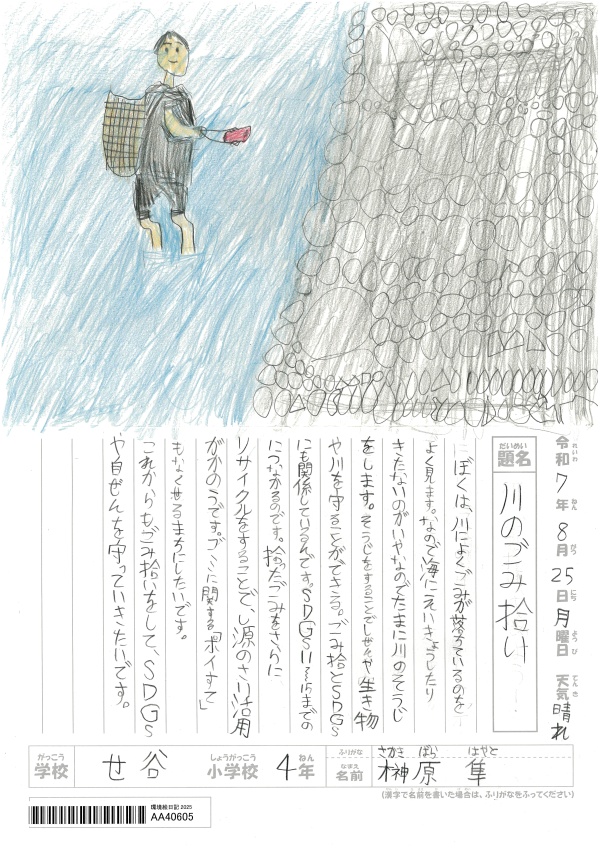 令和7年8月25日月曜日 天気 晴れ
れいわ ねん がつ にち ようび てんき
だいめい
題名 川のごみ拾い
ぼくは、川によくごみが落ちているのを
よく見ます。なので海にえいきょうしたり
きたないのがいやなのでたまに川のそうじ
をします。そうじをすることでしぜんや生き物
や川を守ることができる。ごみ拾とSDGs
にも関係しているんです。SDGs11~15までの
につながるのです。拾ったごみをさらに
リサイクルをすることで、し源のさい活用
がかのうです。ごみに関する「ポイすて」
もなくせるまちにしたいです。
これからもごみ拾いをして、SDGs
や自ぜんを守っていきたいです。
がっこう しょうがっこう ねん
学校 せ谷 小学校 4年
ふりがな さかき ばら はやと
なまえ
名前 榊原 隼
(漢字で名前を書いた場合は、ふりがなをふってください)
環境絵日記 2025
AA40605